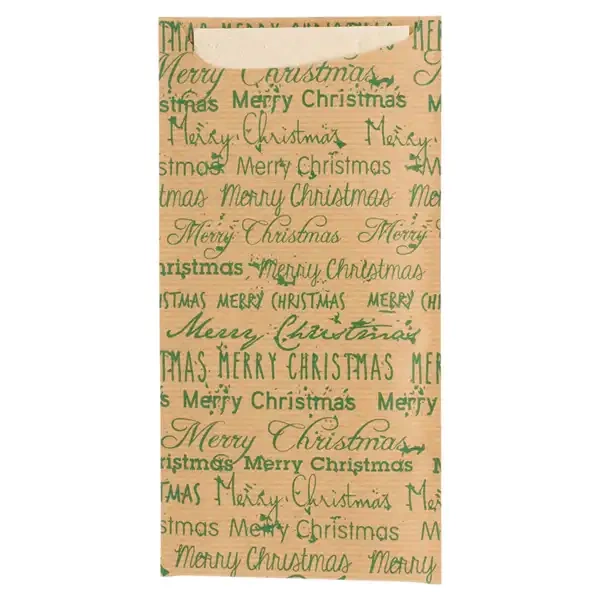 TMAS ME
Merry Christmas
stmas Merry Christmas M
Merry Christmas Merry
stmas Merry Christmas M
tmas Merry Christmas Me
Merry Christmas Merry
hristmas Merry Christmas
ISTMAS MERRY CHRISTMAS MERRY CH
Merry Christmas
TMAS MERRY CHRISTMAS MER
s Merry Christmas Merry
Merry Christmas
ristmas Merry Christmas M
TMAS Merry Christmas Me
stmas Merry Christmas M
Merry Christmas Merry